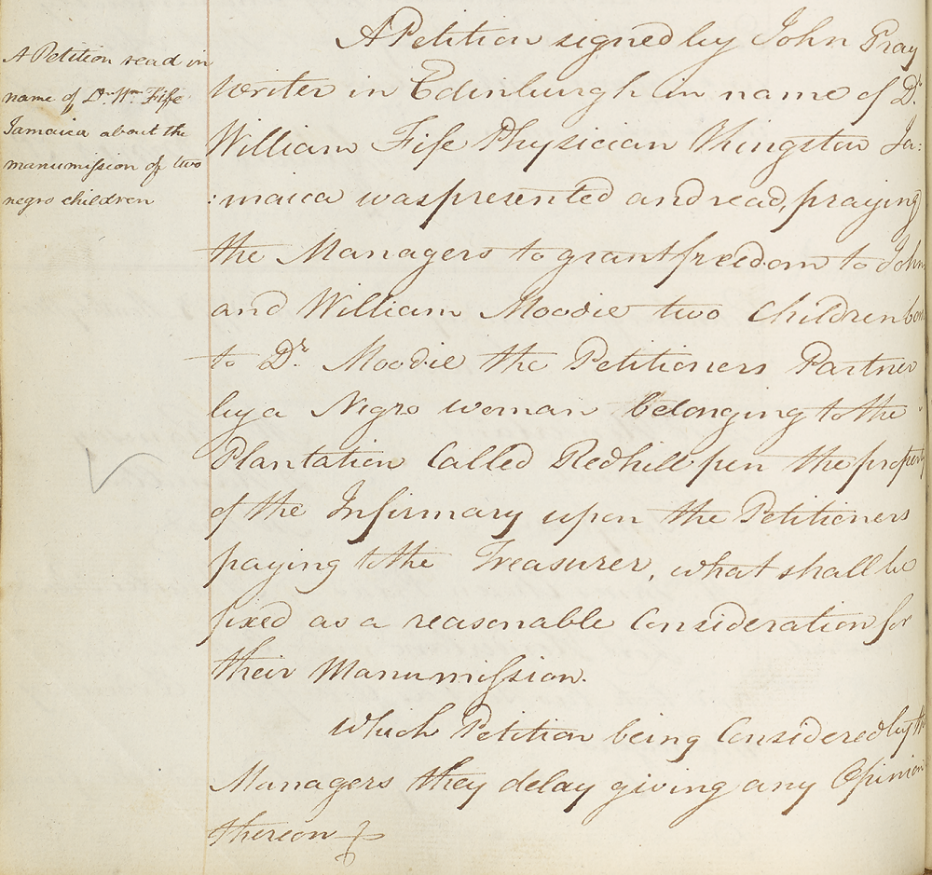 A Petition read in
name of Dr. Wm. Fife
Jamaica about the
manumission of two
negro children
A Petition signed by John Gray
Writer in Edinburgh in name of Dr.
William Fife Physician Kingston Ja:
:maica was presented and read, praying
the Managers to grant freedom to John
and William Moodie two Children
to Dr. Moodie the Petitioners Partner
by a Negro woman belonging to the
Plantation Called Redhill pen the property
of the Infirmary upon the Petitioners
paying to the Treasurer, what shall be
fixed as a reasonable Consideration for
their Manumission.
Which Petition being Considered by the
Managers they delay giving any Opinion
thereon